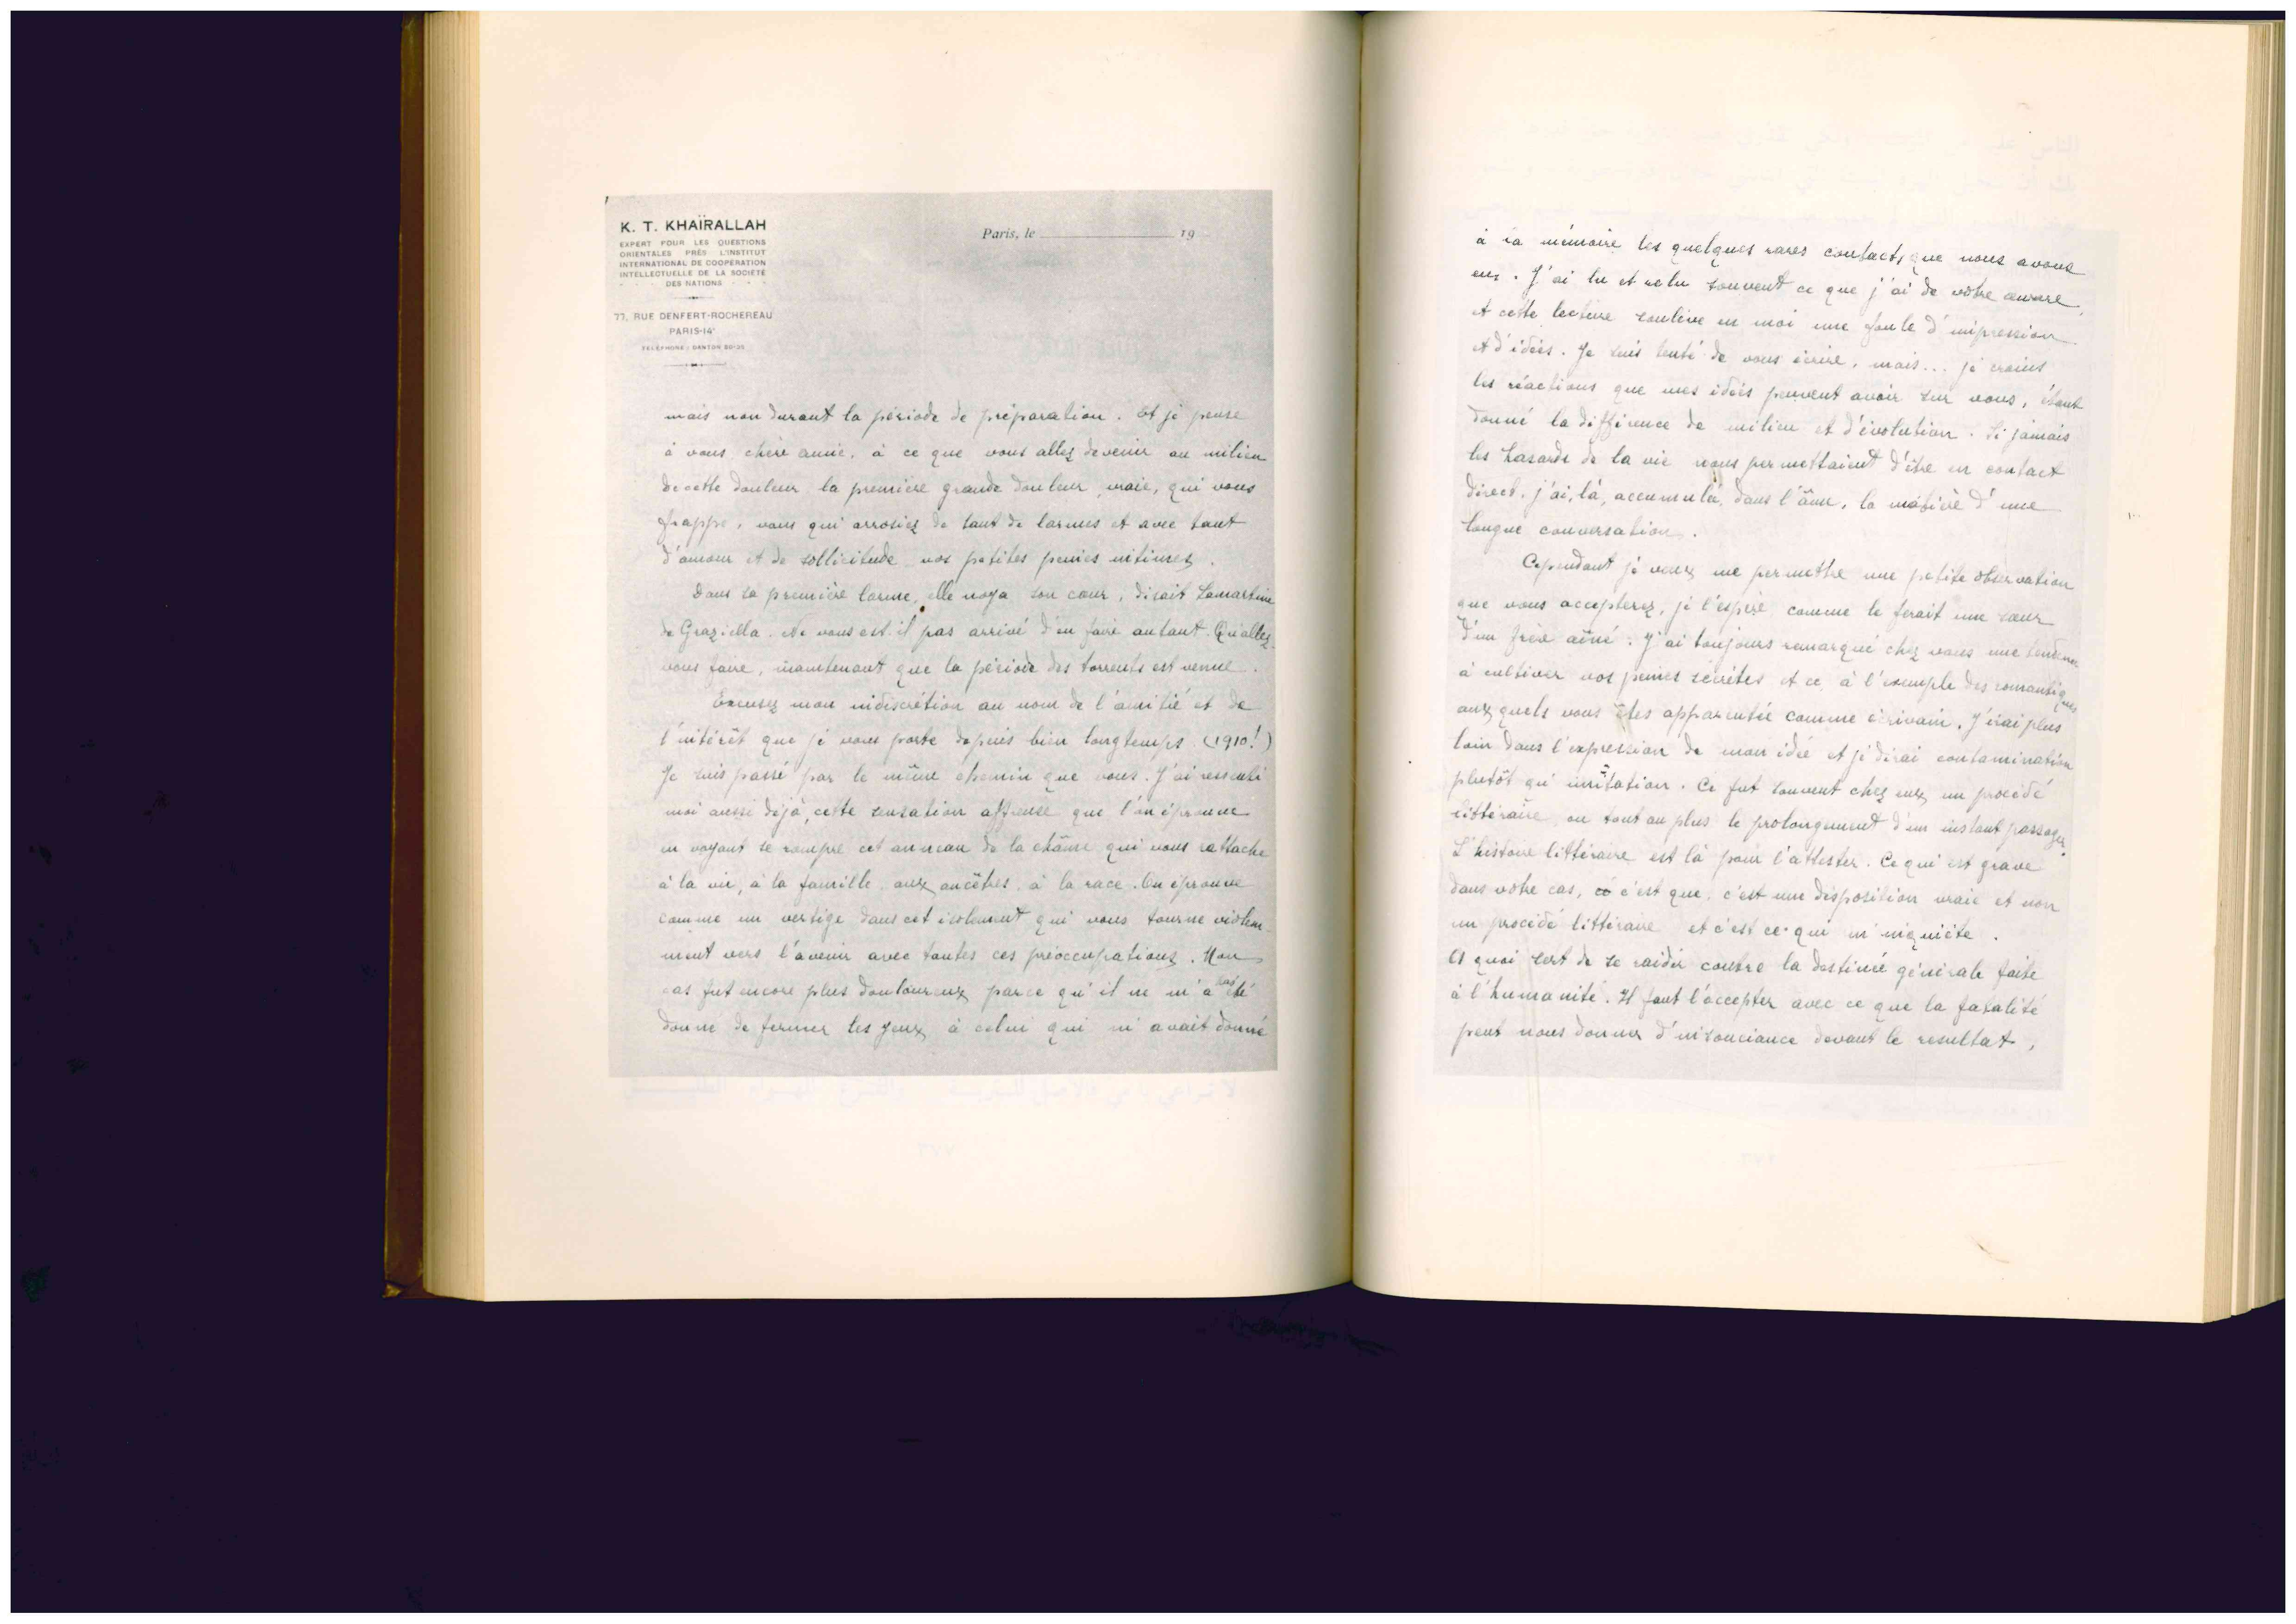 K. T. KHAÏRALLAH
EXPERT POUR LES QUESTIONS
ORIENTALES PRÈS L'INSTITUT
INTERNATIONAL DE COOPÉRATION
INTELLECTUELLE DE LA SOCIÉTÉ
DES NATIONS
77, RUE DENFERT-ROCHEREAU
PARIS-14e
TÉLÉPHONE : DANTON
Paris, le 19
mais non durant la période de préparation. Et je pense
à vous chère amie, à ce que vous allez devenir au milieu
de cette douleur la première grande douleur vraie, qui vous
frappe, vous qui arrosiez de tant de larmes et avec tant
d'amour et de sollicitude vos petites peines intimes.
Dans sa première larme, elle noya son cœur, disait Lamartine
de Graziella. Ne vous est-il pas arrivé d'en faire autant. Qu'allez-
vous faire, maintenant que la période des torrents est venue.
Excusez mon indiscrétion au nom de l'amitié et de
l'intérêt que je vous porte depuis bien longtemps (1910!)
Je suis passé par le même chemin que vous. J'ai ressenti
moi aussi déjà, cette sensation affreuse que l'on éprouve
en voyant se rompre cet anneau de la chaîne qui vous rattache
à la vie, à la famille aux ancêtres à la race. On éprouve
comme un vertige dans cet isolement qui vous tourne violem-
ment vers l'avenir avec toutes ces préoccupations. Mon
cas fut encore plus douloureux parce qu'il ne m'a pas été
donné de fermer les yeux à celui qui m'avait donné
à sa mémoire les quelques rares contacts que nous avons
eus. J'ai lu et relu souvent ce que j'ai de votre œuvre
et cette lecture soulève en moi une foule d'impression
et d'idées. Je suis tenté de vous écrire, mais... je crains
les réactions que mes idées peuvent avoir sur vous, étant
donné la différence de milieu et d'évolution. Si jamais
les hasards de la vie nous permettaient d'être en contact
direct, j'ai, là, accumulée, dans l'âme, la matière d'une
longue conversation.
Cependant je veux me permettre une petite observation
que vous accepterez, je l'espère comme le ferait une sœur
d'un frère aîné. J'ai toujours remarqué chez vous une tendance
à cultiver vos peines secrètes et ce à l'exemple des romantiques
auxquels vous êtes apparentée comme écrivain. J'irai plus
loin dans l'expression de mon idée et je dirai contamination
plutôt qu'imitation. Ce fut souvent chez eux un procédé
littéraire ou tout au plus le prolongement d'un instant passager.
L'histoire littéraire est là pour l'attester. Ce qui est grave
dans votre cas, c'est que, c'est une disposition vraie et non
un procédé littéraire et c'est ce qui m'inquiète.
A quoi sert de se raidir contre la destinée générale faite
à l'humanité. Il faut l'accepter avec ce que la fatalité
peut nous donner d'insouciance devant le resultat,